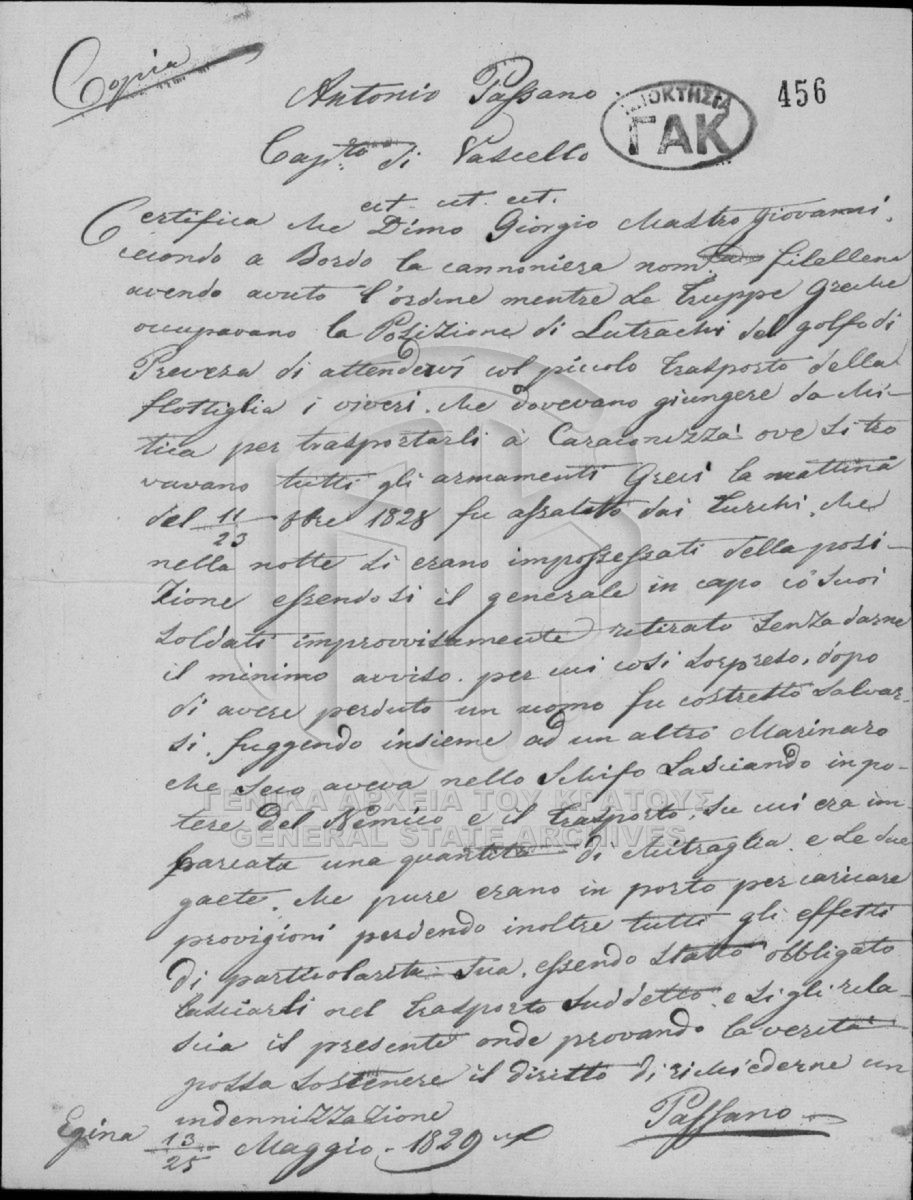 Copia
Antonio Passano
456
ΙΔΙΟΚΤΗΣΙΑ
ΓΑΚ
Cap.no di Vascello
cet. cet. cet.
Certifica che Dimo Giorgio Mastro Giovanni,
secondo a Bordo la cannoniera nom.ta filellena
avendo avuto l'ordine mentre le Truppe Greche
occupavano la Posizione di Lutrachi del golfo di
Preveza di attendervi col piccolo trasporto della
flottiglia i viveri. che dovevano giungere da Mi-
tica per trasportarli à Caraconizzà ove si tro
vavano tutti gli armamenti Greci la mattina
del 11/23 8bre 1828 fu assalito dai Turchi, che
nella notte si erano impossessati della posi-
zione essendosi il generale in capo cò suoi
soldati improvvisamente ritirato senza darne
il minimo avviso. per cui così sorpreso, dopo
di avere perduto un uomo fu costretto salvar-
si, fuggendo insieme ad un altro Marinaro
che seco aveva nello schifo lasciando in po-
tere del Nemico e il trasporto, su cui era im
barcata una quantità di Mitraglia. e le due
gaete. che pure erano in porto per caricare
provigioni perdendo inoltre tutti gli effetti
di particolarità sua, essendo stato obbligato
lasciarli nel trasporto suddetto, e si gli rila-
scia il presente onde provando la verità
possa sostenere il diritto di richiederne un
indennizzazione
Egina 13/25 Maggio 1829
Passano
ΓΕΝΙΚΑ ΑΡΧΕΙΑ ΤΟΥ ΚΡΑΤΟΥΣ
GENERAL STATE ARCHIVES